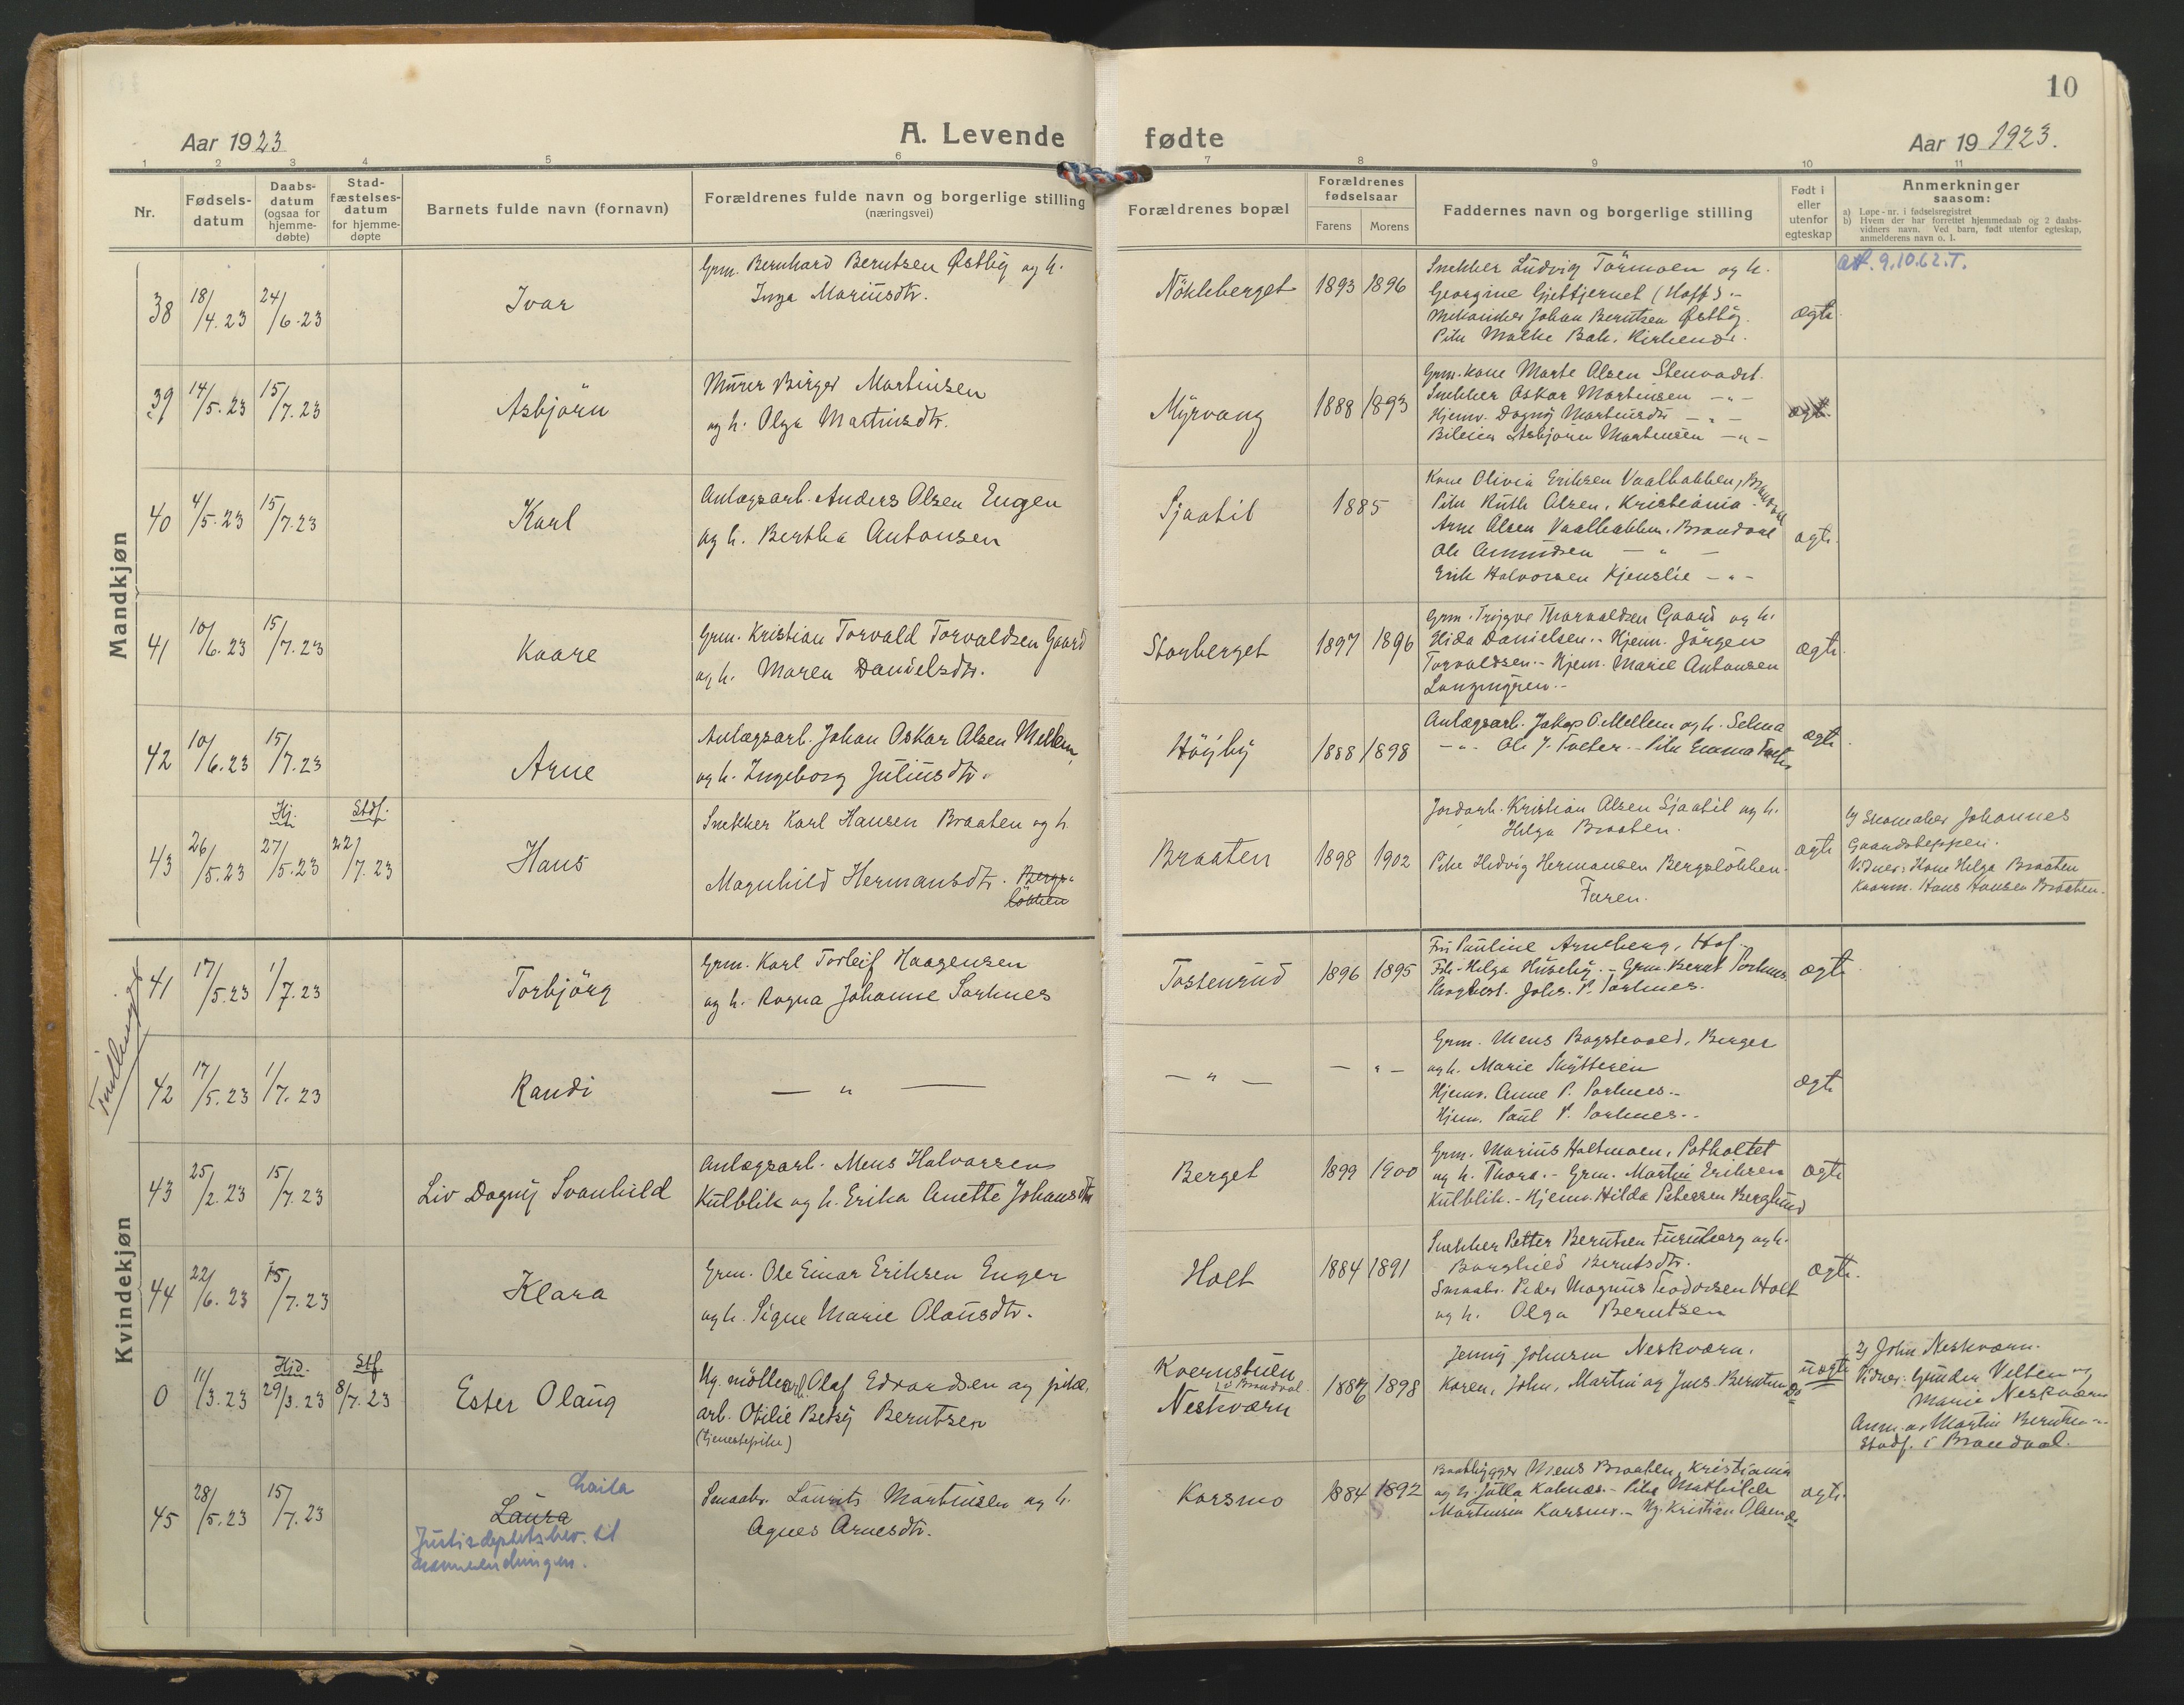 10
Aar 1923
A. Levende fødte
Aar 19 1923.
1 2 3 4 5 6 7 8 9 10 11
Nr.
Fødsels-
datum
Daabs-
datum
(ogsaa for
hjemme-
døbte)
Stad-
fæstelses-
datum
for hjemme-
døpte
Barnets fulde navn (fornavn)
Forældrenes fulde navn og borgerlige stilling
(næringsvei)
Forældrenes bopæl
Forældrenes
fødselsaar
Farens Morens
Faddernes navn og borgerlige stilling
Født i
eller
utenfor
egteskap
Anmerkninger
saasom:
a) Løpe-nr. i fødselsregistret
b) Hvem der har forrettet hjemmedaab og 2 daabs-
vidners navn. Ved barn, født utenfor egteskap,
anmelderens navn o. l.
Mandkjøn
38 18/4.23 24/6.23
Ivar
Grm. Bernhard Berntsen Østby og h.
Inga Mariusdtr.
Nökleberget
1893 1896
Snekker Ludvig Tärmoen og h.
Georgine Gjettjernet (Hoff).-
Mekaniker Johan Berntsen Østby.
Pike Malke Bak. Kirkenær.
ægte
att. 9.10.62.T.
39 14/5.23 15/7.23
Asbjörn
Murer Birger Martinsen
og h. Olga Martinsdtr.
Myrvang
1888 1893
Grm.kone Marte Olsen Stenvadet.
Snekker Oskar Martinsen -"-
Hjemv. Dagny Martinsdtr -"-
Asbjörn Martinsen -"-
ægte.
40 4/5.23 15/7.23
Karl
Anlægsarb. Anders Olsen Eugen
og h. Bertha Antonsen
Sjaatil
1885
Kone Olivia Eriksen Vaalbakken, Brandval
Pike Ruth Olsen, Kristiania.
Arne Olsen Vaalbakken. Brandval
Ole Amundsen - " -
Erik Halvorsen Kjenslie -"-
ægte.
41 10/6.23 15/7.23
Kaare
Grm. Kristian Torvald Torvaldsen Gaard
og h. Maren Danielsdtr.
Storberget
1897 1896
Grm. Trygve Thorvaldsen Gaard og h.
Hilda Danielsen.- Hjemv. Jörgen
Torvaldsen.- Hjemv. Marie Antonsen
Langmyren.-
ægte.
42 10/6.23 15/7.23
Arne
Anlægsarb. Johan Oskar Olsen Mellem,
og h. Ingeborg Juliusdtr.
Höyby
1888 1898
Anlægsarb. Jakop O. Mellem og h. Selma
-"- Ole J. Tveter.- Pike Emma Tveter
ægte.
Hj. Stdf.
43 26/5.23 27/5.23 22/7.23
Hans
Snekker Karl Hansen Braaten og h.
Magnhild Hermansdtr. Bergs-
lökken
Braaten
1898 1902
Jordarb. Kristian Olsen Sjaatil og h.
Helga Braaten.
Pike Hedvig Hermansen Bergslökken.
Faren.
ægte
Skomaker Johannes
Vidner: Kone Helga Braaten
Kaarm. Hans Hansen Braaten.
Kvindekjøn
Tvillinger
41 17/5.23 1/7.23
Torbjörg
Grm. Karl Torleif Haagensen
og h. Ragna Johanne Sorknes
Tostenrud
1896 1895
Fru Pauline Arneberg, Hof.-
Frk. Helga Huseby.- Grm. Bernt Sorknes.
Skogbest. Johs. P. Sorknes.
ægte
42 17/5.23 1/7.23
Randi
- " -
- " -
- " -
Grm. Mens Bogstevold, Berger
og h. Marie Skytteren
Hjemv. Anne P. Sorknes.-
Hjemv. Paul P. Sorknes.-
ægte
43 25/2.23 15/7.23
Liv Dagny Svanhild
Anlægsarb. Mens Halvorsen
Kulblik og h. Erika Anette Johansdtr
Berget
1899 1900
Grm. Marius Holtmoen, Potholtet
og h. Thora.- Grm. Martin Eriksen
Kulblik.- Hjemv. Hilda Petersen Berglund
ægte
44 22/6.23 15/7.23
Klara
Grm. Ole Einar Eriksen Enger
og h. Signe Marie Olausdtr.
Holt
1884 1891
Snekker Petter Berntsen Furuberg og h.
Borghild Berntsdtr.
Smaabr. Peder Magnus Teodorsen Holt
og h. Olga Berntsen
ægte.
Hjd. Stf.
0 11/3.23 29/3.23 8/7.23
Ester Olaug
Ug. möllearb. Olaf Edvardsen og pike,
arb. Otilie Betsy Berntsen
(tjenestepike)
Kvernstuen
i Brandval
Neskværn
1887 1898
Jenny Johnsen Neskværn.
Karen, John, Martin og Jens. Berntsen
uægte
John Neskværn.
Vidner: Gunder Velten og
Marie Neskværn
Anm. av Martin Berntsen
Stadf. i Brandval.
45 28/5.23 15/7.23
Laila
Laura
Justisdeptets bev. til
navneendringen.
Smaabr. Laurits Martinsen og h.
Agnes Arnesdtr.
Korsmo
1884 1892
Mens Braaten, Kristiania
og h. Jutta Kalnæs.- Pike Mathilde
Martinsen Korsmo.- Ug. Kristian Olsen
ægte.